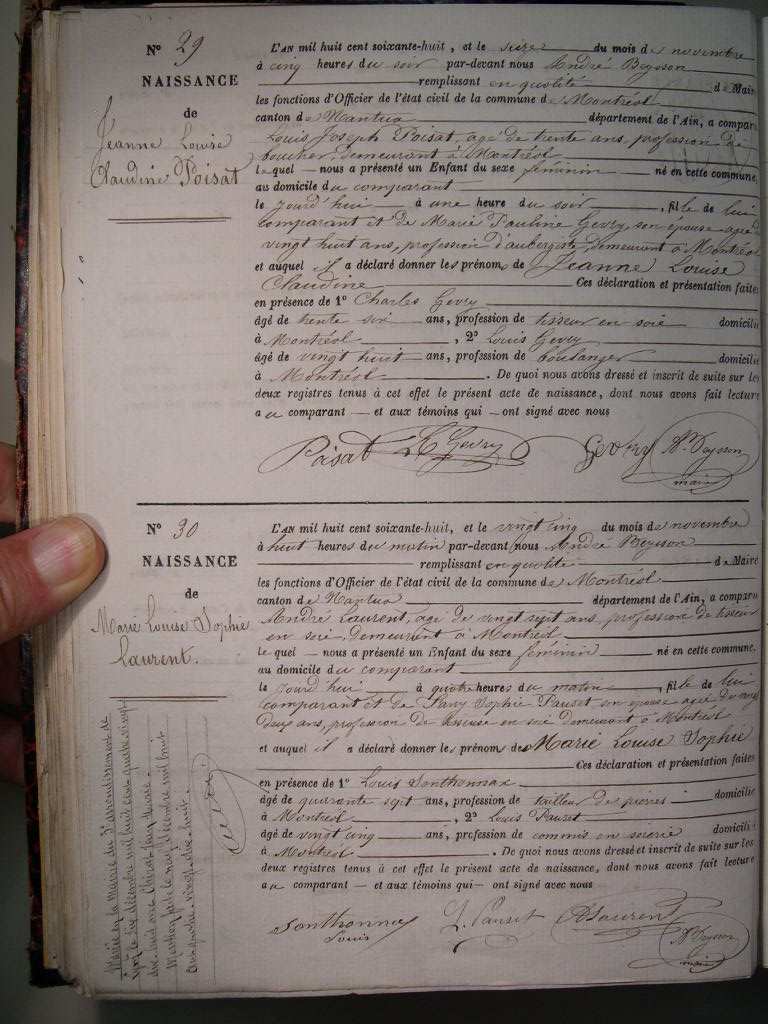 N° 29
NAISSANCE
de
Jeanne Louise
Claudine Poisat
L'AN mil huit cent soixante-huit, et le seize du mois de novembre
à cinq heures du soir par-devant nous André Beysson
remplissant en qualité de Maire
les fonctions d'Officier de l'état civil de la commune de Montréal
canton de Nantua département de l'Ain, a comparu
Louis Joseph Poisat, agé de trente ans, profession de
boucher, demeurant à Montréal
lequel nous a présenté un Enfant du sexe féminin né en cette commune,
au domicile du comparant
le jourd'hui à une heure du soir, fille de lui
comparant et de Marie Pauline Gevry, son épouse agée de
vingt huit ans, profession d'aubergiste, demeurant à Montréal
et auquel il a déclaré donner les prénoms de Jeanne Louise
Claudine Ces déclaration et présentation faites
en présence de 1° Charles Gevry
âgé de trente six ans, profession de tisseur en soie domicilié
à Montréal, 2° Louis Gevry
âgé de vingt huit ans, profession de boulanger domicilié
à Montréal. De quoi nous avons dressé et inscrit de suite sur les
deux registres tenus à cet effet le présent acte de naissance, dont nous avons fait lecture
au comparant et aux témoins qui ont signé avec nous
Poisat Ch Gevry Gevry A. Beysson
maire
N° 30
NAISSANCE
de
Marie Louise Sophie
Laurent.
L'AN mil huit cent soixante-huit, et le vingt cinq du mois de novembre
à huit heures du matin par-devant nous André Beysson
remplissant en qualité de Maire
les fonctions d'Officier de l'état civil de la commune de Montréal
canton de Nantua département de l'Ain, a comparu
André Laurent, agé de vingt sept ans, profession de tisseur
en soie, demeurant à Montréal
lequel nous a présenté un Enfant du sexe féminin né en cette commune.
au domicile du comparant
le jourd'hui à quatre heures du matin, fille de lui
comparant et de Fany Sophie Pauset son épouse agée de vingt
deux ans, profession de tisseuse en soie demeurant à Montréal
et auquel il a déclaré donner les prénoms de Marie Louise Sophie
Ces déclaration et présentation faites
en présence de 1° Louis Sonthonnax
âgé de quarante sept ans, profession de tailleur de pierres domicilié
à Montréal, 2° Louis Pauset
âgé de vingt cinq ans, profession de commis en soierie domicilié
à Montréal. De quoi nous avons dressé et inscrit de suite sur les
deux registres tenus à cet effet le présent acte de naissance, dont nous avons fait lecture
au comparant et aux témoins qui ont signé avec nous
Sonthonnax L. Pauset A Laurent A. Beysson
Louis maire
Mariée en la mairie du arrondissement de
Lyon le dix décembre mil huit cent quatre vingt
dix huit avec
décembre mil huit
cent quatre vingt dix huit